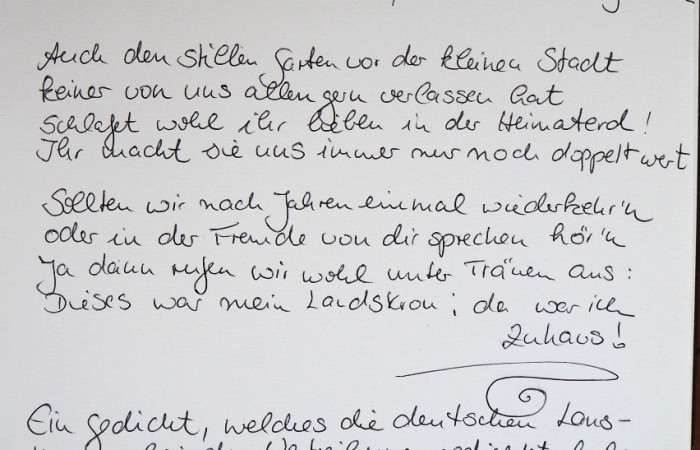 Auch den stillen Garten vor der kleinen Stadt
keiner von uns allen gern verlassen hat
Schlafet wohl ihr lieben in der Heimaterd!
Ihr macht sie uns immer nur noch doppelt wert
Sollten wir nach Jahren einmal wiederkehr'n
oder in der Fremde von dir sprechen hör'n
Ja dann rufen wir wohl unter Tränen aus:
Dieses war mein Landskron; da war ich
Zuhaus!
Ein Gedicht, welches die deutschen Lans-